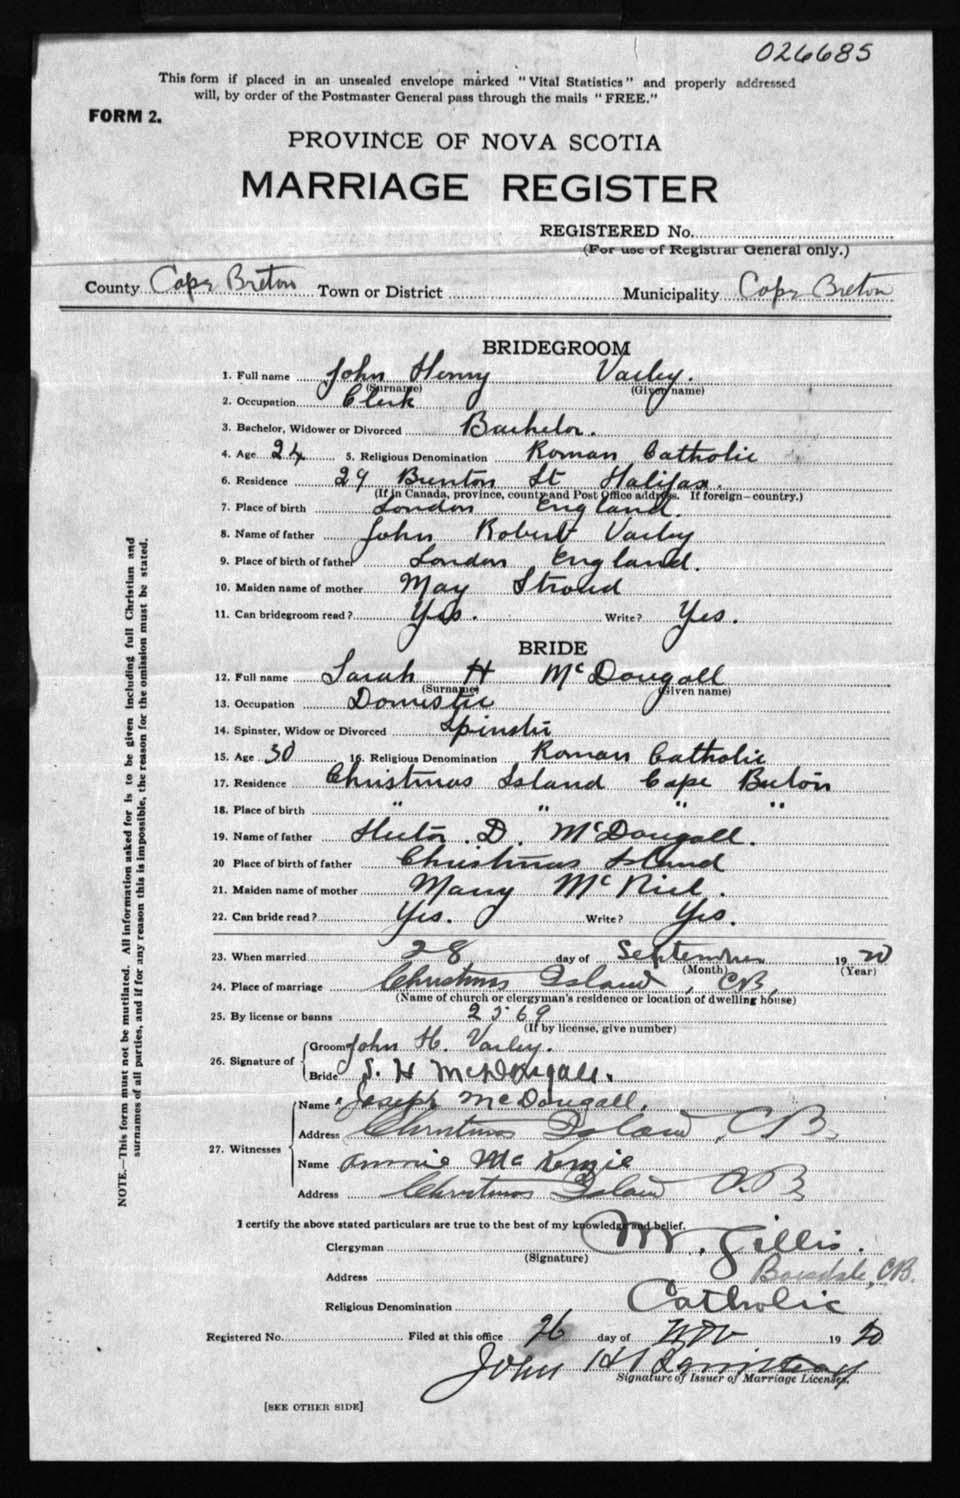 026685
This form if placed in an unsealed envelope marked "Vital Statistics" and properly addressed
will, by order of the Postmaster General pass through the mails "FREE."
FORM 2.
PROVINCE OF NOVA SCOTIA
MARRIAGE REGISTER
REGISTERED No.
(For use of Registrar General only.)
County Cape Breton Town or District Municipality Cape Breton
BRIDEGROOM
1. Full name John Henry Varley.
(Surname) (Given name)
2. Occupation Clerk
3. Bachelor, Widower or Divorced Bachelor.
4. Age 24 5. Religious Denomination Roman Catholic
6. Residence 29 Brunton St Halifax.
(If in Canada, province, county and Post Office address. If foreign—country.)
7. Place of birth London England.
8. Name of father John Robert Varley
9. Place of birth of father London England.
10. Maiden name of mother May Stroud
11. Can bridegroom read? Yes. Write? Yes.
BRIDE
12. Full name Sarah H McDougall
(Surname) (Given name)
13. Occupation Domestic
14. Spinster, Widow or Divorced Spinster
15. Age 30 16. Religious Denomination Roman Catholic
17. Residence Christmas Island Cape Breton
18. Place of birth " " " "
19. Name of father Hector D. McDougall.
20 Place of birth of father Christmas Island
21. Maiden name of mother Mary McNeil.
22. Can bride read? Yes. Write? Yes.
23. When married 28 day of September 19 20
(Month) (Year)
24. Place of marriage Christmas Island, CB,
(Name of church or clergyman's residence or location of dwelling house)
25. By license or banns 2569
(If by license, give number)
26. Signature of
Groom John H. Varley.
Bride S. H McDougall.
27. Witnesses
Name Joseph McDougall,
Address Christmas Island, CB,
Name Annie McKenzie
Address Christmas Island C.B,
I certify the above stated particulars are true to the best of my knowledge and belief.
Clergyman M. Gillis.
(Signature)
Address Boisdale, CB.
Religious Denomination Catholic
Registered No. Filed at this office 26 day of Nov 19 20
John H
Signature of Issuer of Marriage Licenses.
[SEE OTHER SIDE]
NOTE.—This form must not be mutilated. All information asked for is to be given including full Christian and
surnames of all parties, and if for any reason this is impossible, the reason for the omission must be stated.